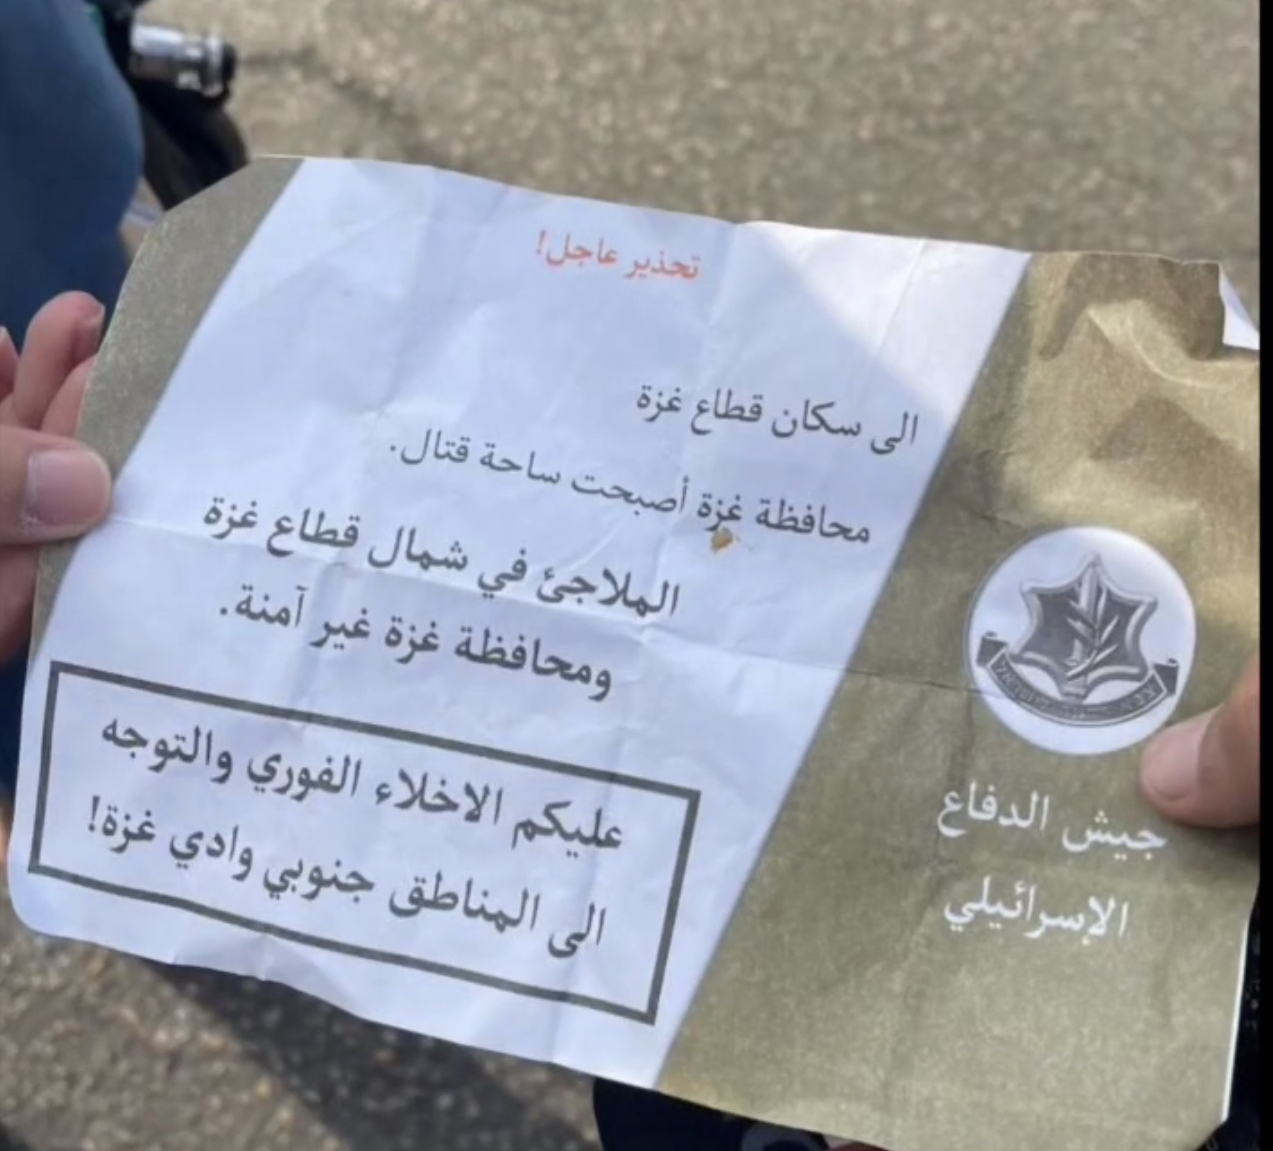 تحذير عاجل!
الى سكان قطاع غزة
محافظة غزة أصبحت ساحة قتال.
الملاجئ في شمال قطاع غزة
ومحافظة غزة غير آمنة.
عليكم الاخلاء الفوري والتوجه
الى المناطق جنوبي وادي غزة!
جيش الدفاع
الإسرائيلي